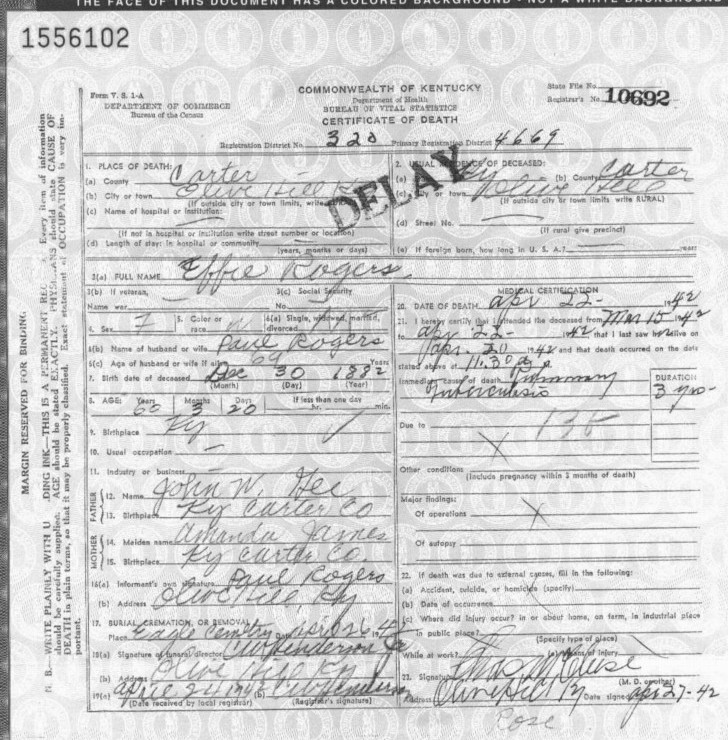 THE FACE OF THIS DOCUMENT HAS A COLORED BACKGROUND - NOT A WHITE BACKGROUND
1556102
MARGIN RESERVED FOR BINDING
N. B.—WRITE PLAINLY WITH U DING INK—THIS IS A PERMANENT REC Every item of information
should be carefully supplied. AGE should be stated EXACTLY. PHYSI ANS should state CAUSE OF
DEATH in plain terms, so that it may be properly classified. Exact statement of OCCUPATION is very im-
portant.
Form V. S. 1-A
DEPARTMENT OF COMMERCE
Bureau of the Census
COMMONWEALTH OF KENTUCKY
Department of Health
BUREAU OF VITAL STATISTICS
CERTIFICATE OF DEATH
State File No.
Registrar's No. 10692
Registration District No. 320 Primary Registration District 4669
DELAY
1. PLACE OF DEATH:
(a) County Carter
(b) City or town Olive Hill Ky
(If outside city or town limits, write
(c) Name of hospital or institution:
(If not in hospital or institution write street number or location)
(d) Length of stay: in hospital or community
(years, months or days)
2. USUAL RESIDENCE OF DECEASED:
(a) Ky (b) County Carter
(c) City or town Olive Hill
(If outside city or town limits write RURAL)
(d) Street No.
(If rural give precinct)
(e) If foreign born, how long in U. S. A.? years
3(a) FULL NAME Effie Rogers
3(b) If veteran, 3(c) Social Security
Name war No.
4. Sex F 5. Color or race W 6(a) Single, widowed, married, divorced M
6(b) Name of husband or wife Paul Rogers
6(c) Age of husband or wife if alive 69 Years
7. Birth date of deceased Dec 30 1882
(Month) (Day) (Year)
8. AGE: Years Months Days If less than one day
60 3 20 hr. min.
9. Birthplace Ky
10. Usual occupation
11. Industry or business
FATHER
12. Name John W. Gee
13. Birthplace Ky Carter Co
MOTHER
14. Maiden name Amanda James
15. Birthplace Ky Carter Co.
16(a) Informant's own signature Paul Rogers
(b) Address Olive Hill, Ky
17. BURIAL, CREMATION, OR REMOVAL
Place Eagle Date Apr 26 1942
18(a) Signature of funeral director C W Henderson
(b) Address Olive Hill Ky
19(a) April 24 1942 (b) C W Henderson
(Date received by local registrar) (Registrar's signature)
MEDICAL CERTIFICATION
20. DATE OF DEATH Apr 22- 1942
21. I hereby certify that I attended the deceased from Mar 15 1942
to Apr. 22- 1942 that I last saw her alive on
Apr. 20 1942 and that death occurred on the date
stated above at 11:30 a
Immediate cause of death Pulmonary
Tuberculosis
DURATION
3 yrs-
Due to 13b
Other conditions
(Include pregnancy within 3 months of death)
Major findings:
Of operations
Of autopsy
22. If death was due to external causes, fill in the following:
(a) Accident, suicide, or homicide (specify)
(b) Date of occurrence
(c) Where did injury occur? in or about home, on farm, in industrial place
in public place?
(Specify type of place)
While at work? (e) Means of injury
23. Signature
(M. D. or other)
Address Olive Hill Ky Date signed Apr 27-42
Rose